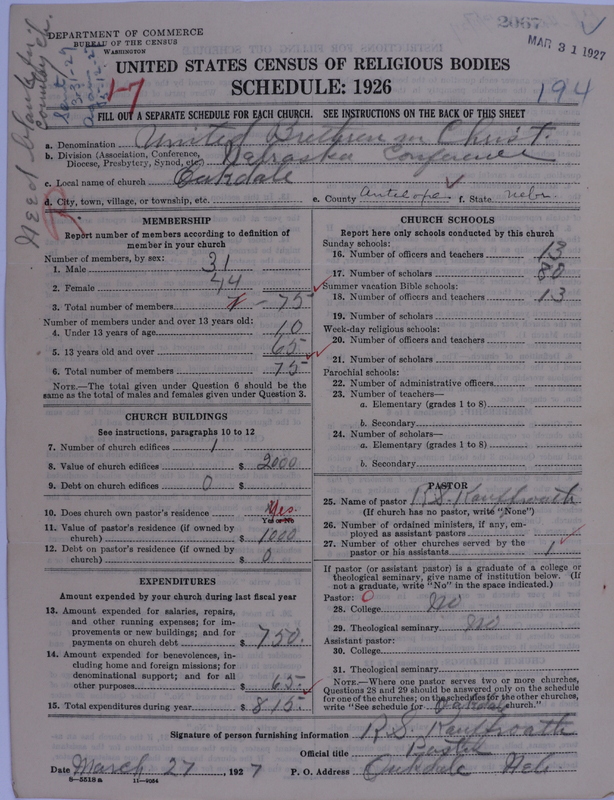 DEPARTMENT OF COMMERCE
BUREAU OF THE CENSUS
WASHINGTON
MAR 31 1927
UNITED STATES CENSUS OF RELIGIOUS BODIES
SCHEDULE: 1926
1-7
194
FILL OUT A SEPARATE SCHEDULE FOR EACH CHURCH. SEE INSTRUCTIONS ON THE BACK OF THIS SHEET
a. Denomination United Brethren in Christ.
b. Division (Association, Conference, Diocese, Presbytery, Synod, etc.) Nebraska Conference
c. Local name of church Oakdale
d. City, town, village, or township, etc. e. County Antelope f. State Nebr.
MEMBERSHIP
Report number of members according to definition of
member in your church
Number of members, by sex:
1. Male 31
2. Female 44
3. Total number of members 75
Number of members under and over 13 years old:
4. Under 13 years of age 10
5. 13 years old and over 65
6. Total number of members 75
NOTE.—The total given under Question 6 should be
same as the total of males and females given under Question 3.
CHURCH BUILDINGS
See instructions, paragraphs 10 to 12
7. Number of church edifices 1
8. Value of church edifices $ 2000
9. Debt on church edifices 0 $
10. Does church own pastor's residence Yes.
Yes or No
11. Value of pastor's residence (if owned by
church) $ 1000
12. Debt on pastor's residence (if owned by
church) $ 0
EXPENDITURES
Amount expended by your church during last fiscal year
13. Amount expended for salaries, repairs,
and other running expenses; for im-
provements or new buildings; and for
payments on church debt $ 750.
14. Amount expended for benevolences, in-
cluding home and foreign missions; for
denominational support; and for all
other purposes $ 65-
15. Total expenditures during year $ 815-
CHURCH SCHOOLS
Report here only schools conducted by this church
Sunday schools:
16. Number of officers and teachers 13
17. Number of scholars 80
Summer vacation Bible schools:
18. Number of officers and teachers 13
19. Number of scholars
Week-day religious schools:
20. Number of officers and teachers
21. Number of scholars
Parochial schools:
22. Number of administrative officers
23. Number of teachers—
a. Elementary (grades 1 to 8)
b. Secondary
24. Number of scholars—
a. Elementary (grades 1 to 8)
b. Secondary
PASTOR
25. Name of pastor R.S.
(If church has no pastor, write "None")
26. Number of ordained ministers, if any, em-
ployed as assistant pastors
27. Number of other churches served by the
pastor or his assistants 1
If pastor (or assistant pastor) is a graduate of a college or
theological seminary, give name of institution below. (If
not a graduate, write "No" in the space indicated.)
Pastor:
28. College No
29. Theological seminary No
Assistant pastor:
30. College
31. Theological seminary
NOTE.—Where one pastor serves two or more churches,
Questions 28 and 29 should be answered only on the schedule
for one of the churches; on the schedules for the other churches,
write "See schedule for Oakdale church."
Signature of person furnishing information R.S.
Official title Pastor
Date March 27, 1927 P. O. Address Oakdale Neb.
8-5518 a 11-9034